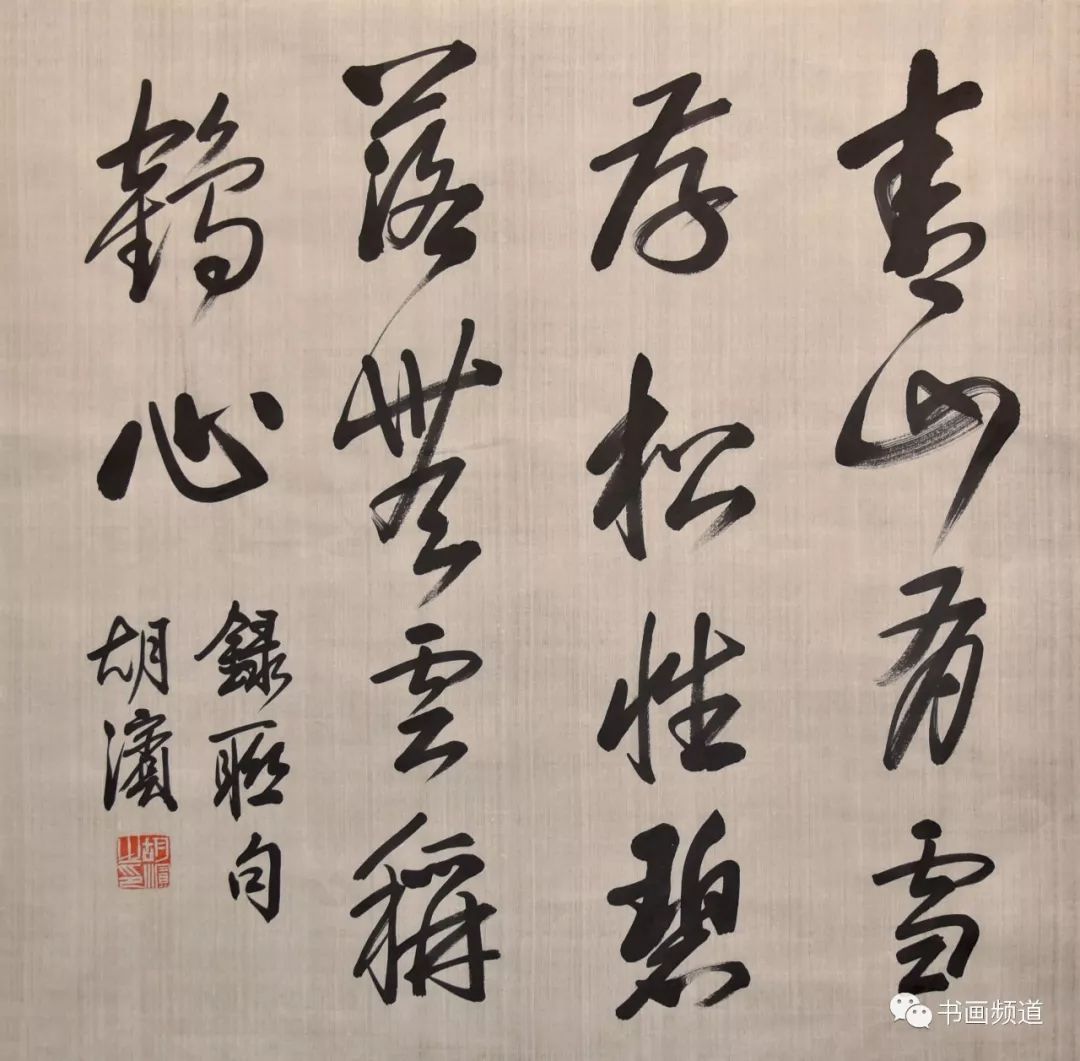 青山有雪
存松性碧
落無雲稱
鶴心
錄聯句
胡濱
胡濱之印
书画频道